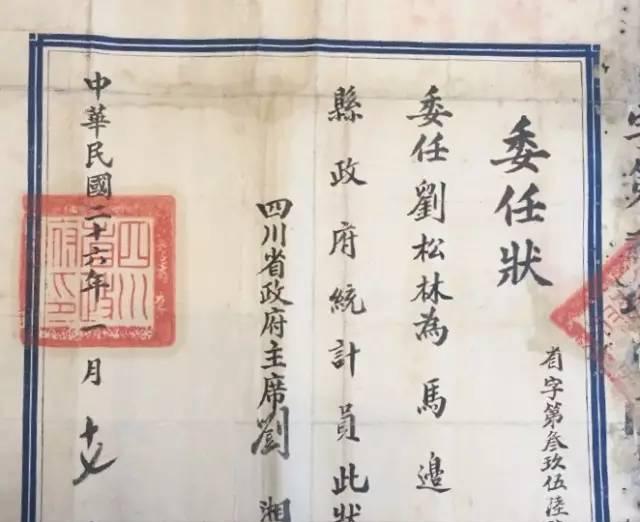 委任狀
省字第叁玖伍陸
委任劉松林為馬邊
縣政府統計員此狀
四川省政府主席劉湘
中華民國二十六年一月十七
四川省政府印